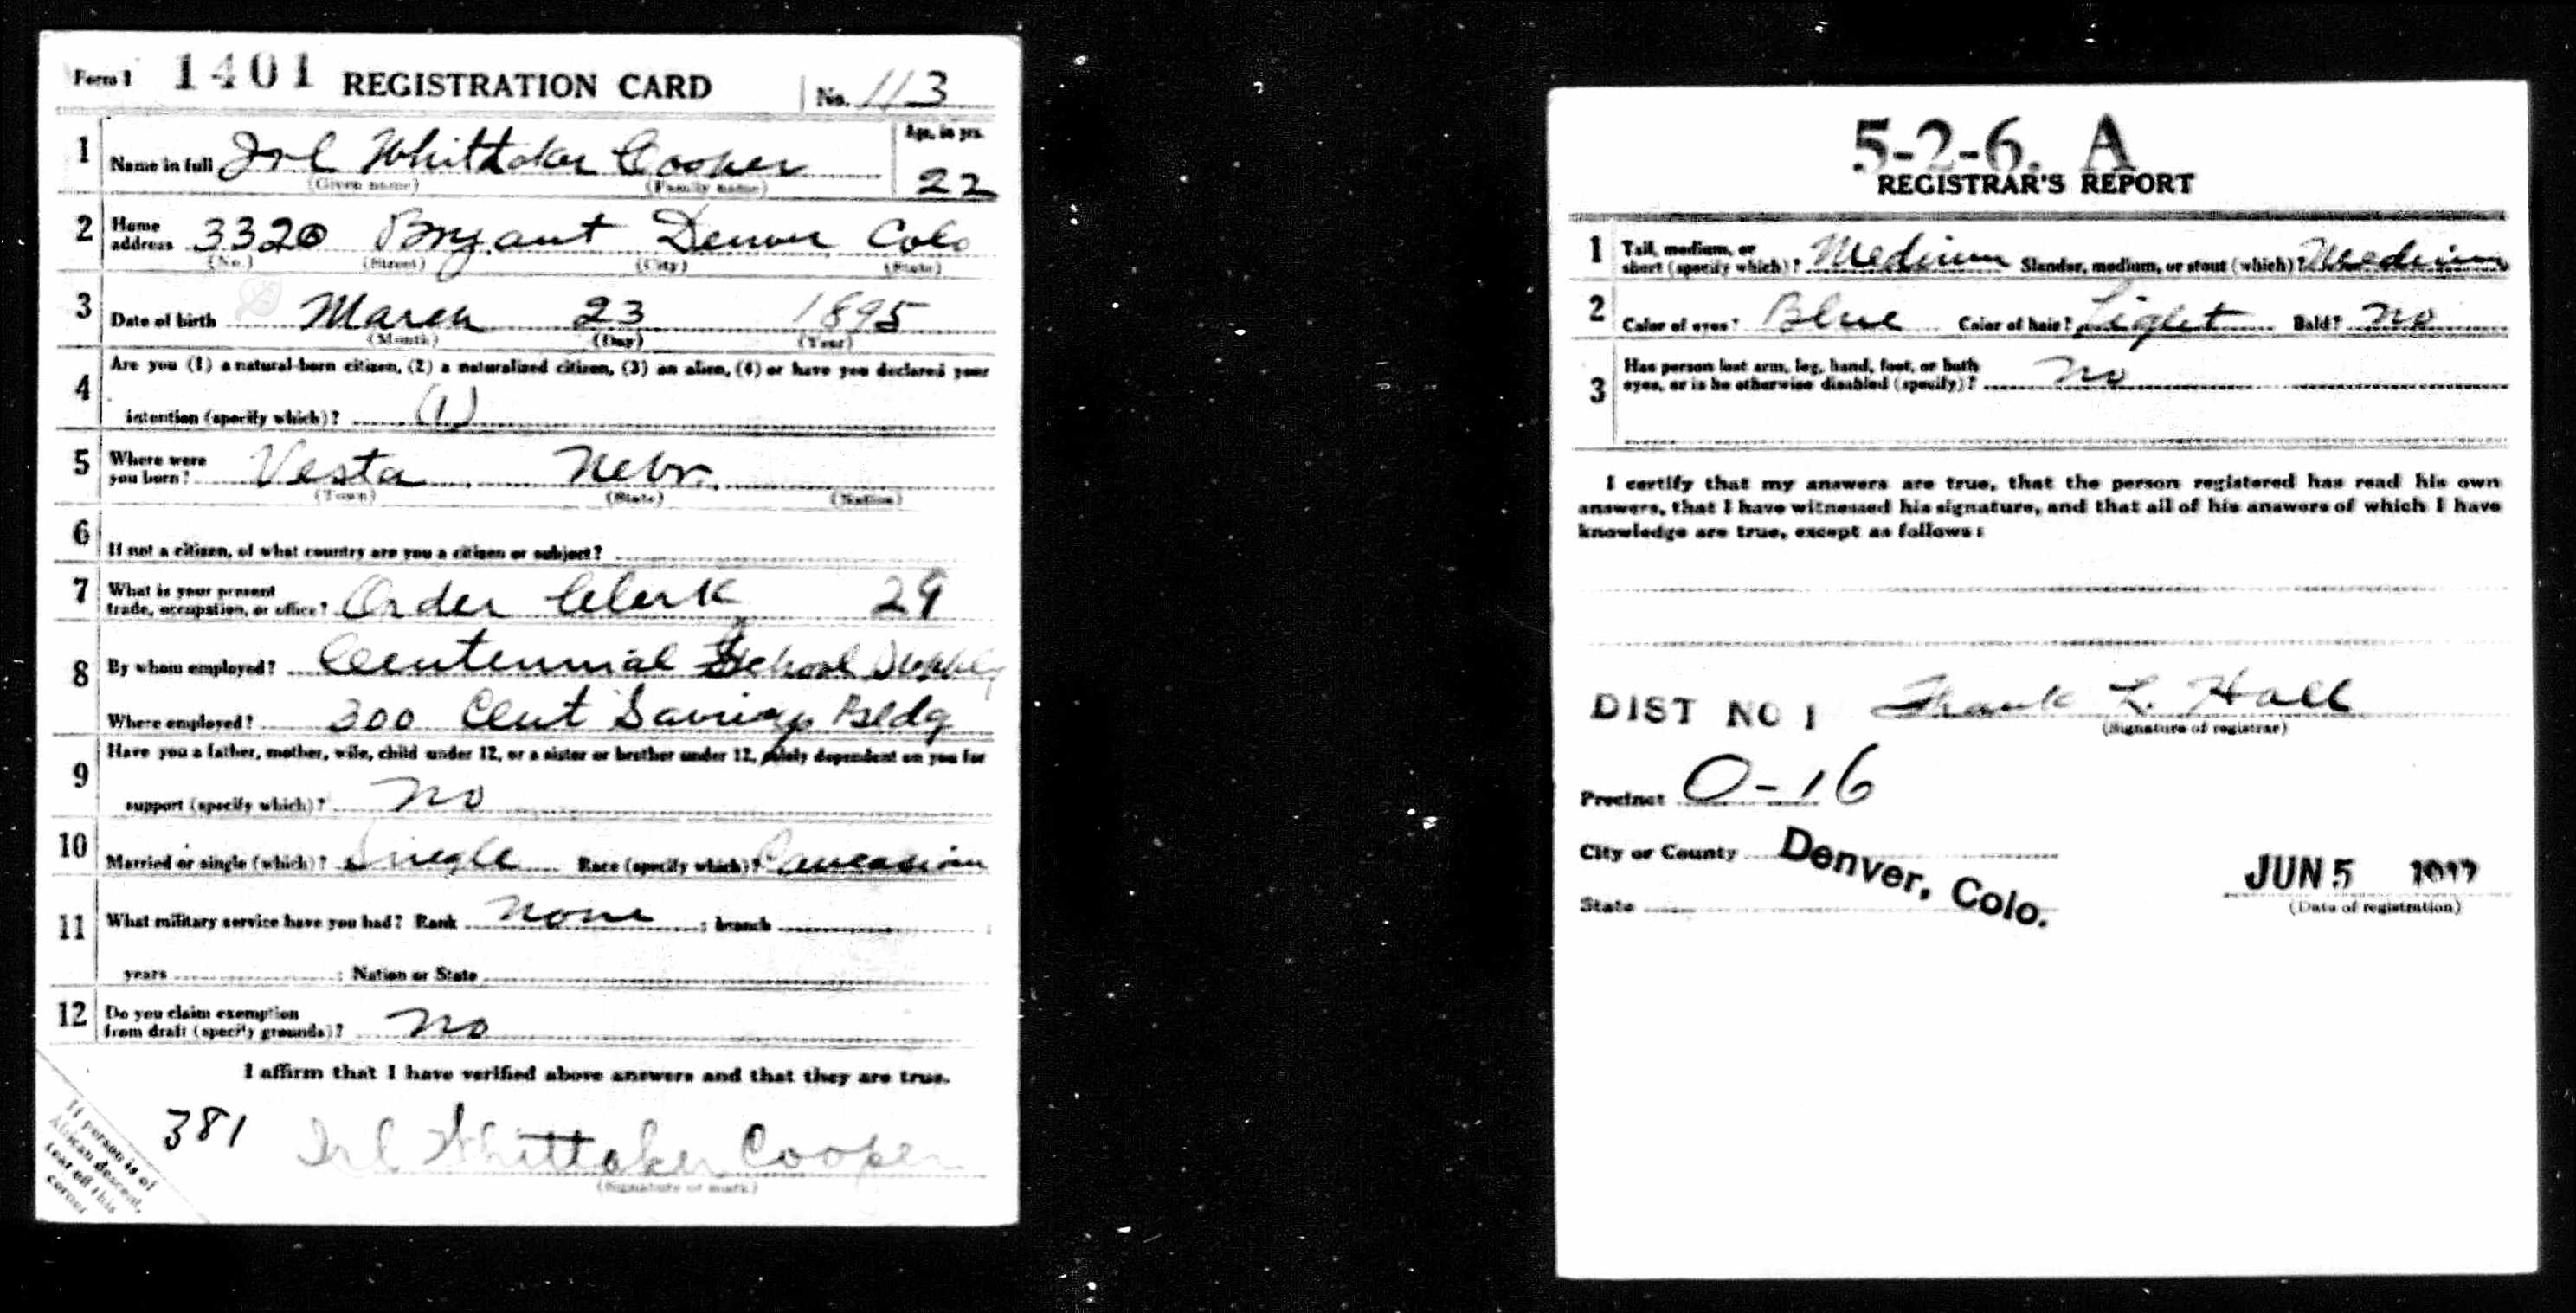 Form 1 1401 REGISTRATION CARD No. 113
1 Name in full Irl Whittaker Cooper Age, in yrs. 22
(Given name) (Family name)
2 Home address 3320 Bryant Denver Colo
(No.) (Street) (City) (State)
3 Date of birth March 23 1895
(Month) (Day) (Year)
4 Are you (1) a natural-born citizen, (2) a naturalized citizen, (3) an alien, (4) or have you declared your
intention (specify which)? (1)
5 Where were you born? Vesta Nebr.
(Town) (State) (Nation)
6 If not a citizen, of what country are you a citizen or subject?
7 What is your present trade, occupation, or office? Order Clerk 29
8 By whom employed? Centennial School Supply
Where employed? 300 Cent Savings Bldg
9 Have you a father, mother, wife, child under 12, or a sister or brother under 12, solely dependent on you for
support (specify which)? No
10 Married or single (which)? Single Race (specify which)? Caucasian
11 What military service have you had? Rank None ; branch
years ; Nation or State
12 Do you claim exemption from draft (specify grounds)? No
I affirm that I have verified above answers and that they are true.
381 Irl Whittaker Cooper
(Signature or mark)
If person is of
African descent,
tear off this
corner
5-2-6. A
REGISTRAR'S REPORT
1 Tall, medium, or short (specify which)? Medium Slender, medium, or stout (which)? Medium
2 Color of eyes? Blue Color of hair? Light Bald? No
3 Has person lost arm, leg, hand, foot, or both
eyes, or is he otherwise disabled (specify)? No
I certify that my answers are true, that the person registered has read his own
answers, that I have witnessed his signature, and that all of his answers of which I have
knowledge are true, except as follows:
DIST NO 1 Frank L. Hall
(Signature of registrar)
Precinct 0-16
City or County Denver, Colo.
State
JUN 5 1917
(Date of registration)